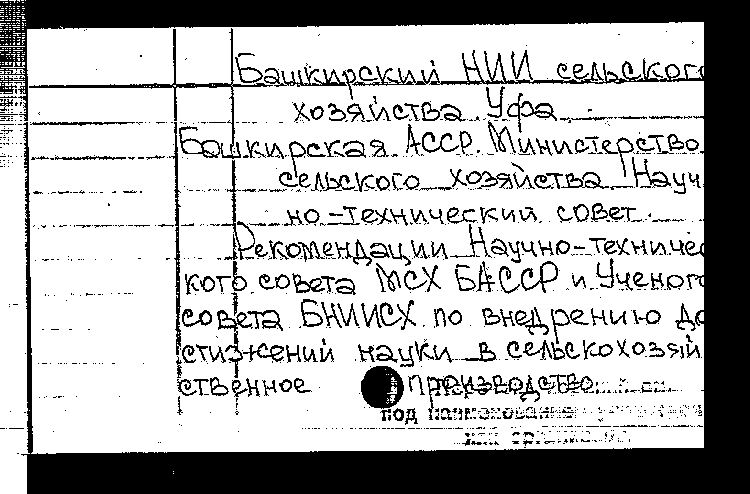 Башкирский НИИ сельског
хозяйства Уфа.
Башкирская АССР. Министерство
сельского хозяйства Науч
но-технический совет.
Рекомендации Научно-техничес
кого совета МСХ БАССР и Ученого
совета БНИИСХ по внедрению до
стижений науки в сельскохозяй
ственное производство.
под наименование